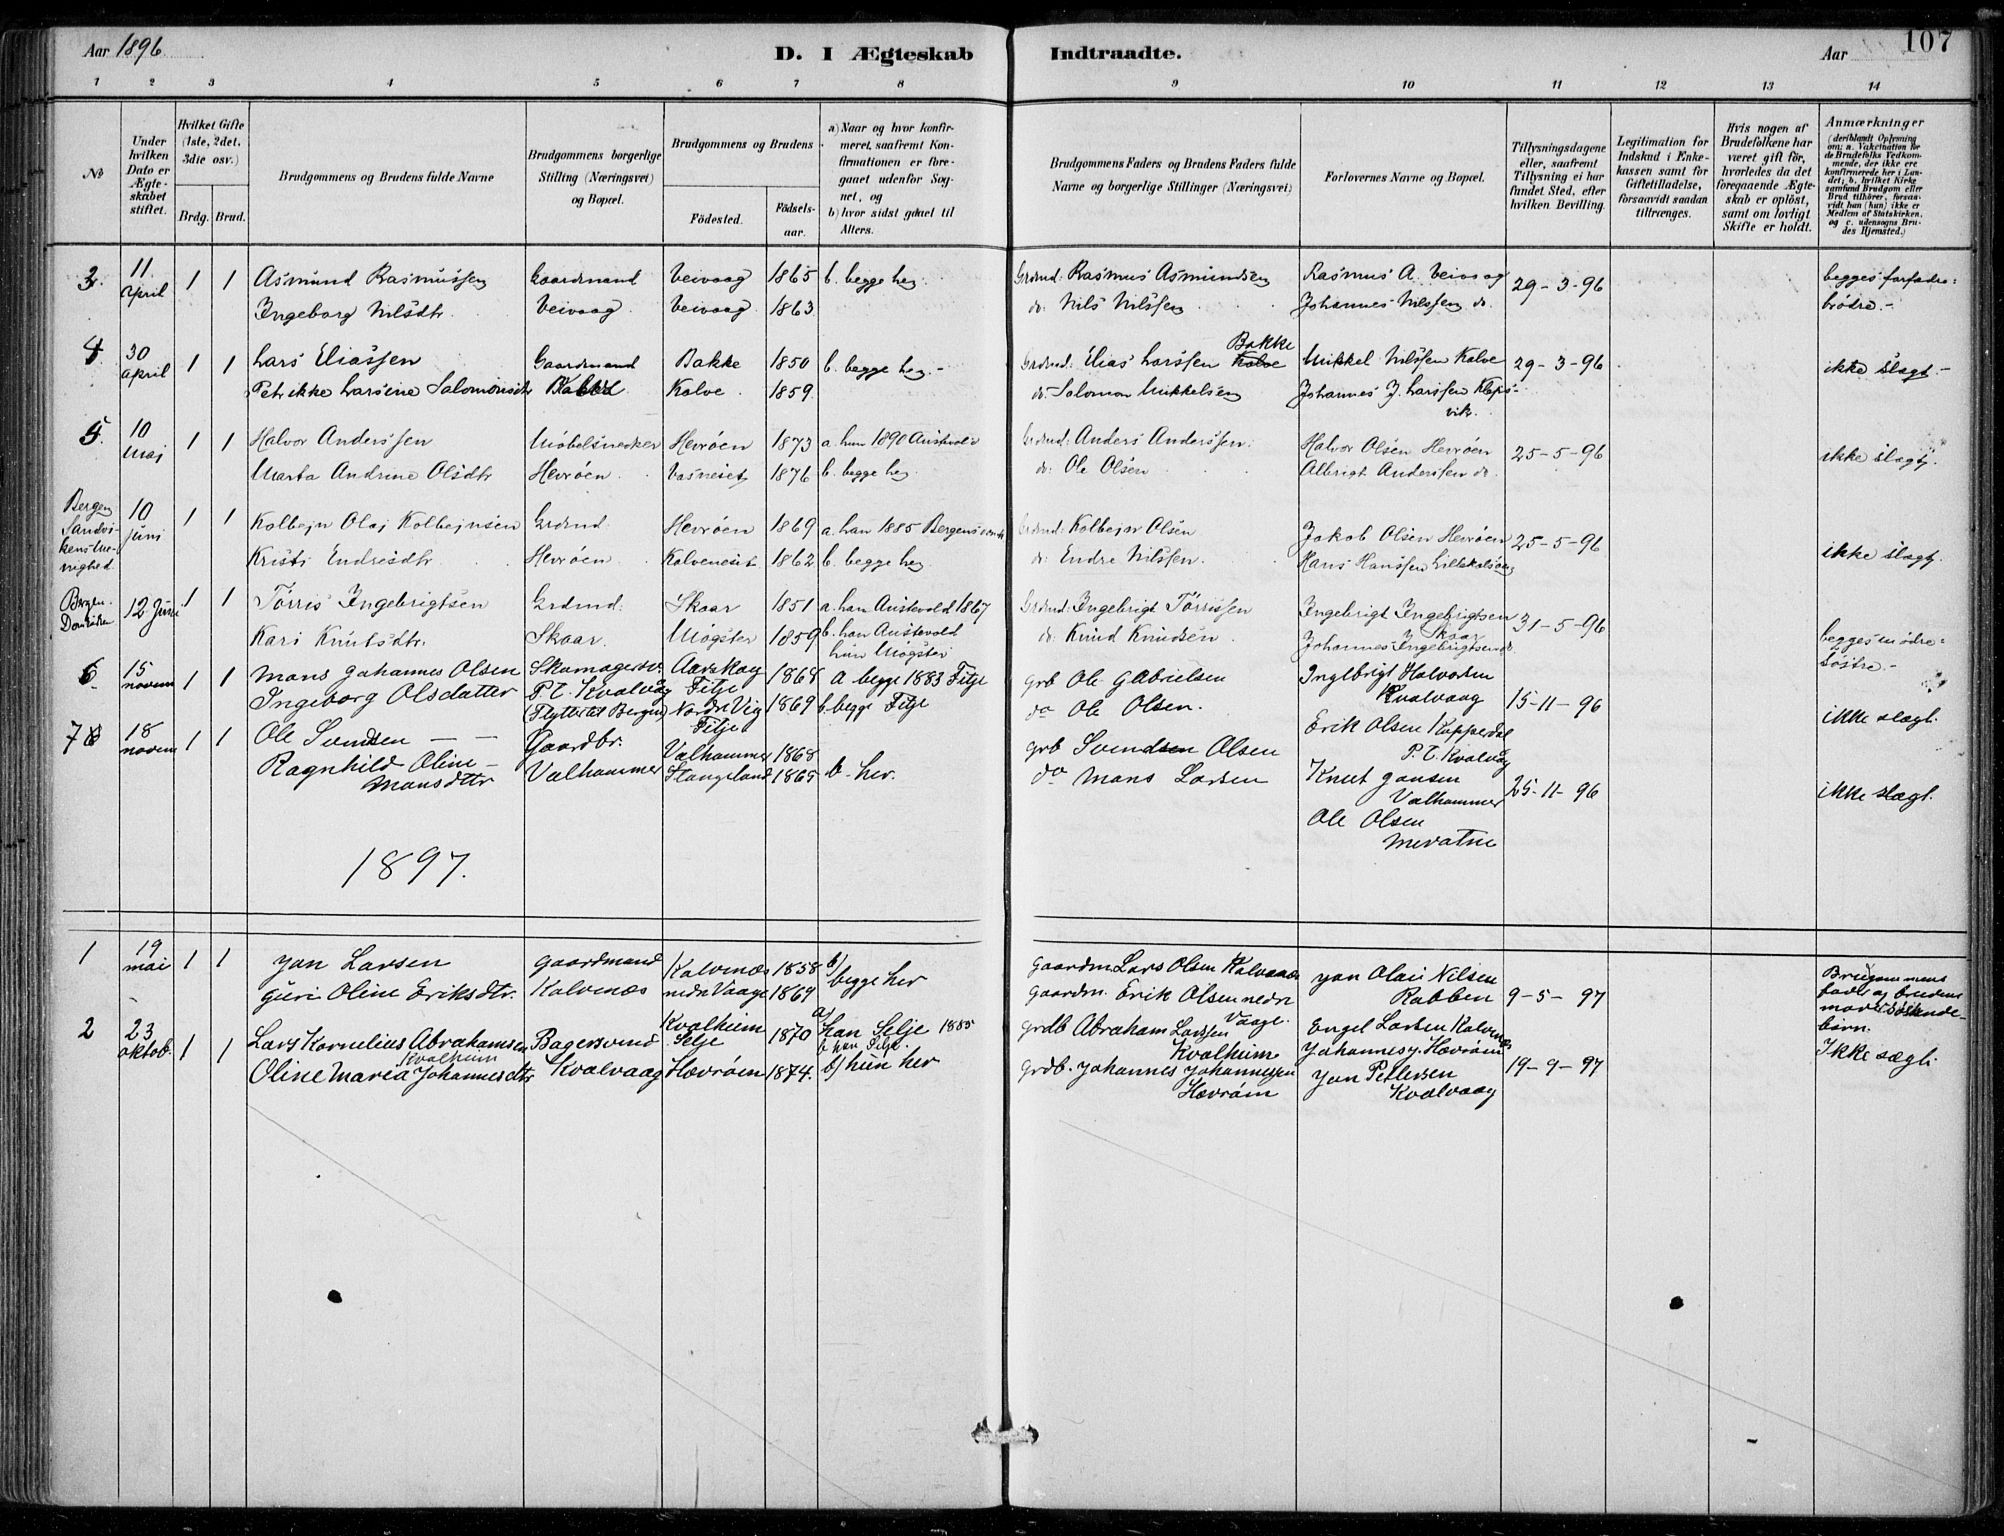 Aar 1896. D. I Ægteskab Indtraadte. Aar 107
1 2 3 4 5 6 7 8 9 10 11 12 13 14
№
Under hvilken Dato er Ægteskabet stiftet.
Hvilket Gifte (1ste, 2det, 3die osv.)
Brdg. Brud.
Brudgommens og Brudens fulde Navne
Brudgommens borgerlige Stilling (Næringsvei) og Bopæl.
Brudgommens og Brudens
Födested. Födsels-aar.
a) Naar og hvor konfirmeret, saafremt Konfirmationen er foregaaet udenfor Sognet, og
b) hvor sidst gaaet til Alters.
Brudgommens Faders og Brudens Faders fulde Navne og borgerlige Stillinger (Næringsvei)
Forlovernes Navne og Bopæl.
Tillysningsdagene eller, saafremt Tillysning ei har fundet Sted, efter hvilken Bevilling.
Legitimation for Indskud i Enkekassen samt for Giftetilladelse, forsaavidt saadan tiltrænges.
Hvis nogen af Brudefolkene har været gift för, hvorledes da det foregaaende Ægteskab er oplöst, samt om lovligt Skifte er holdt.
Anmærkninger (deriblandt Oplysning om: a. Vakcination for de Brudefolks Vedkommende, der ikke ere konfirmerede her i Landet; b. hvilket Kirkesamfund Brudgom eller Brud tilhörer, forsaavidt han (hun) ikke er Medlem af Statskirken, og c. udensogns Brudes Hjemsted.)
3. 11. april 1 1 Asmund Rasmussen Gaardmand Veivaag 1865 b. begge her. Grdmd: Rasmus Asmundsen Rasmus A. Veivaag 29-3-96 begges farfadre:
Ingeborg Nilsdtr. Veivaag. Veivaag 1863. do: Nils Nilssen Johannes Nilssen do. brødre.-
4 30 april 1 1 Lars Eliassen Gaardmand Bakke 1850 b. begge her.- Grdmd: Elias Larssen Bakke Mikkel Nilssen Kalve 29-3-96 ikke slægt-
Petrikke Larsine Salomonsdtr Kalve 1859. do: Salomon Mikkelsen Johannes J. Larssen Kleps-
vik.
5 10 Maj 1 1 Halvor Anderssen Møbelsnedker Hevrøen 1873 a. han 1890 Austevold Grdmd: Anders Anderssen. Halvor Olsen Hevrøen 25-5-96 ikke slægt.
Marta Andrine Olsdtr Hevrøen. Vasneset 1876 b. begge her do: Ole Olsen Albrigt Anderssen do.
Bergen Sandvikens Menighed 10 juni 1 1 Kolbejn Olaj Kolbejnsen Grdmd: Hevrøen 1869 a. han 1885 Bergen Grdmd: Kolbejn Olsen Jakob Olsen Hevrøen 25-5-96 ikke slægt.
Kristi Endresdtr. Hevrøen. Kalveneset 1862 b. begge her do: Endre Nilssen. Hans Hanssen Lillekalsøen
Bergen Domkirken 12 Juni 1 1 Tørris Ingebrigtsen Grdmd: Skaar 1851 a. han Austevold 1867 Grdmd: Ingebrigt Tørrissen Ingebrigt Ingebrigtsen Skaar 31-5-96 begges mødre:
Kari Knutsdtr. Skaar. Møgster 1859 b. han Austevold hun Møgster do: Knud Knudsen. Johannes J. Ingebrigtsen do. søstre.-
6 15 novem 1 1 Mans Johannes Olsen Skomagersv. Aarskog Fitje 1868 a begge 1883 Fitje grb Ole Gabrielsen Inglbrigt Halvorsen Kvalvaag 15-11-96 ikke slægt.
Ingeborg Olsdatter P.T. Kvalvåg (Flyttet til Bergen) Nordre Vig Fitje 1869 b. begge Fitje do Ole Olsen. Erik Olsen Koppedal P.T. Kvalvåg
7 18 novem 1 1 Ole Svendsen - - Gaardbr. Valhammer 1868 grb Svend Olsen Knut Jansen Valhammer 25-11-96 ikke slægt.
Ragnhild Oline Mansdttr Valhammer Stangeland 1865 b- her. do Mans Larsen Ole Olsen Mevatne
1897.
1 19 mai 1 1 Jan Larsen gaardmand Kalvenæs 1858 b) begge her gaardm Lars Olsen Kalvenæs Jan Olai Nilsen Rabben 9-5-97 Brugommens fader og brudens moder søskendebörn.
Guri Oline Eriksdtr. Kalvenæs nedre Vaage 1869 gaardm. Erik Olsen nedre Vaage. Engel Larsen Kalvenæs
2 23 oktob. 1 1 Lars Kornelius Abrahamsen Kvalheim Bagersvend Kvalheim Selje 1870 a) han Selje 1885 b han Fitje. grdb Abraham Larssen Kvalheim Johannes J. Hævrøen 19-9-97 Ikke sægt.
Oline Maria Johannesdtr Kvalvaag Hævrøen 1874. b) hun her grdb. Johannes Johannessen Hævrøen Jan Pettersen Kvalvaag